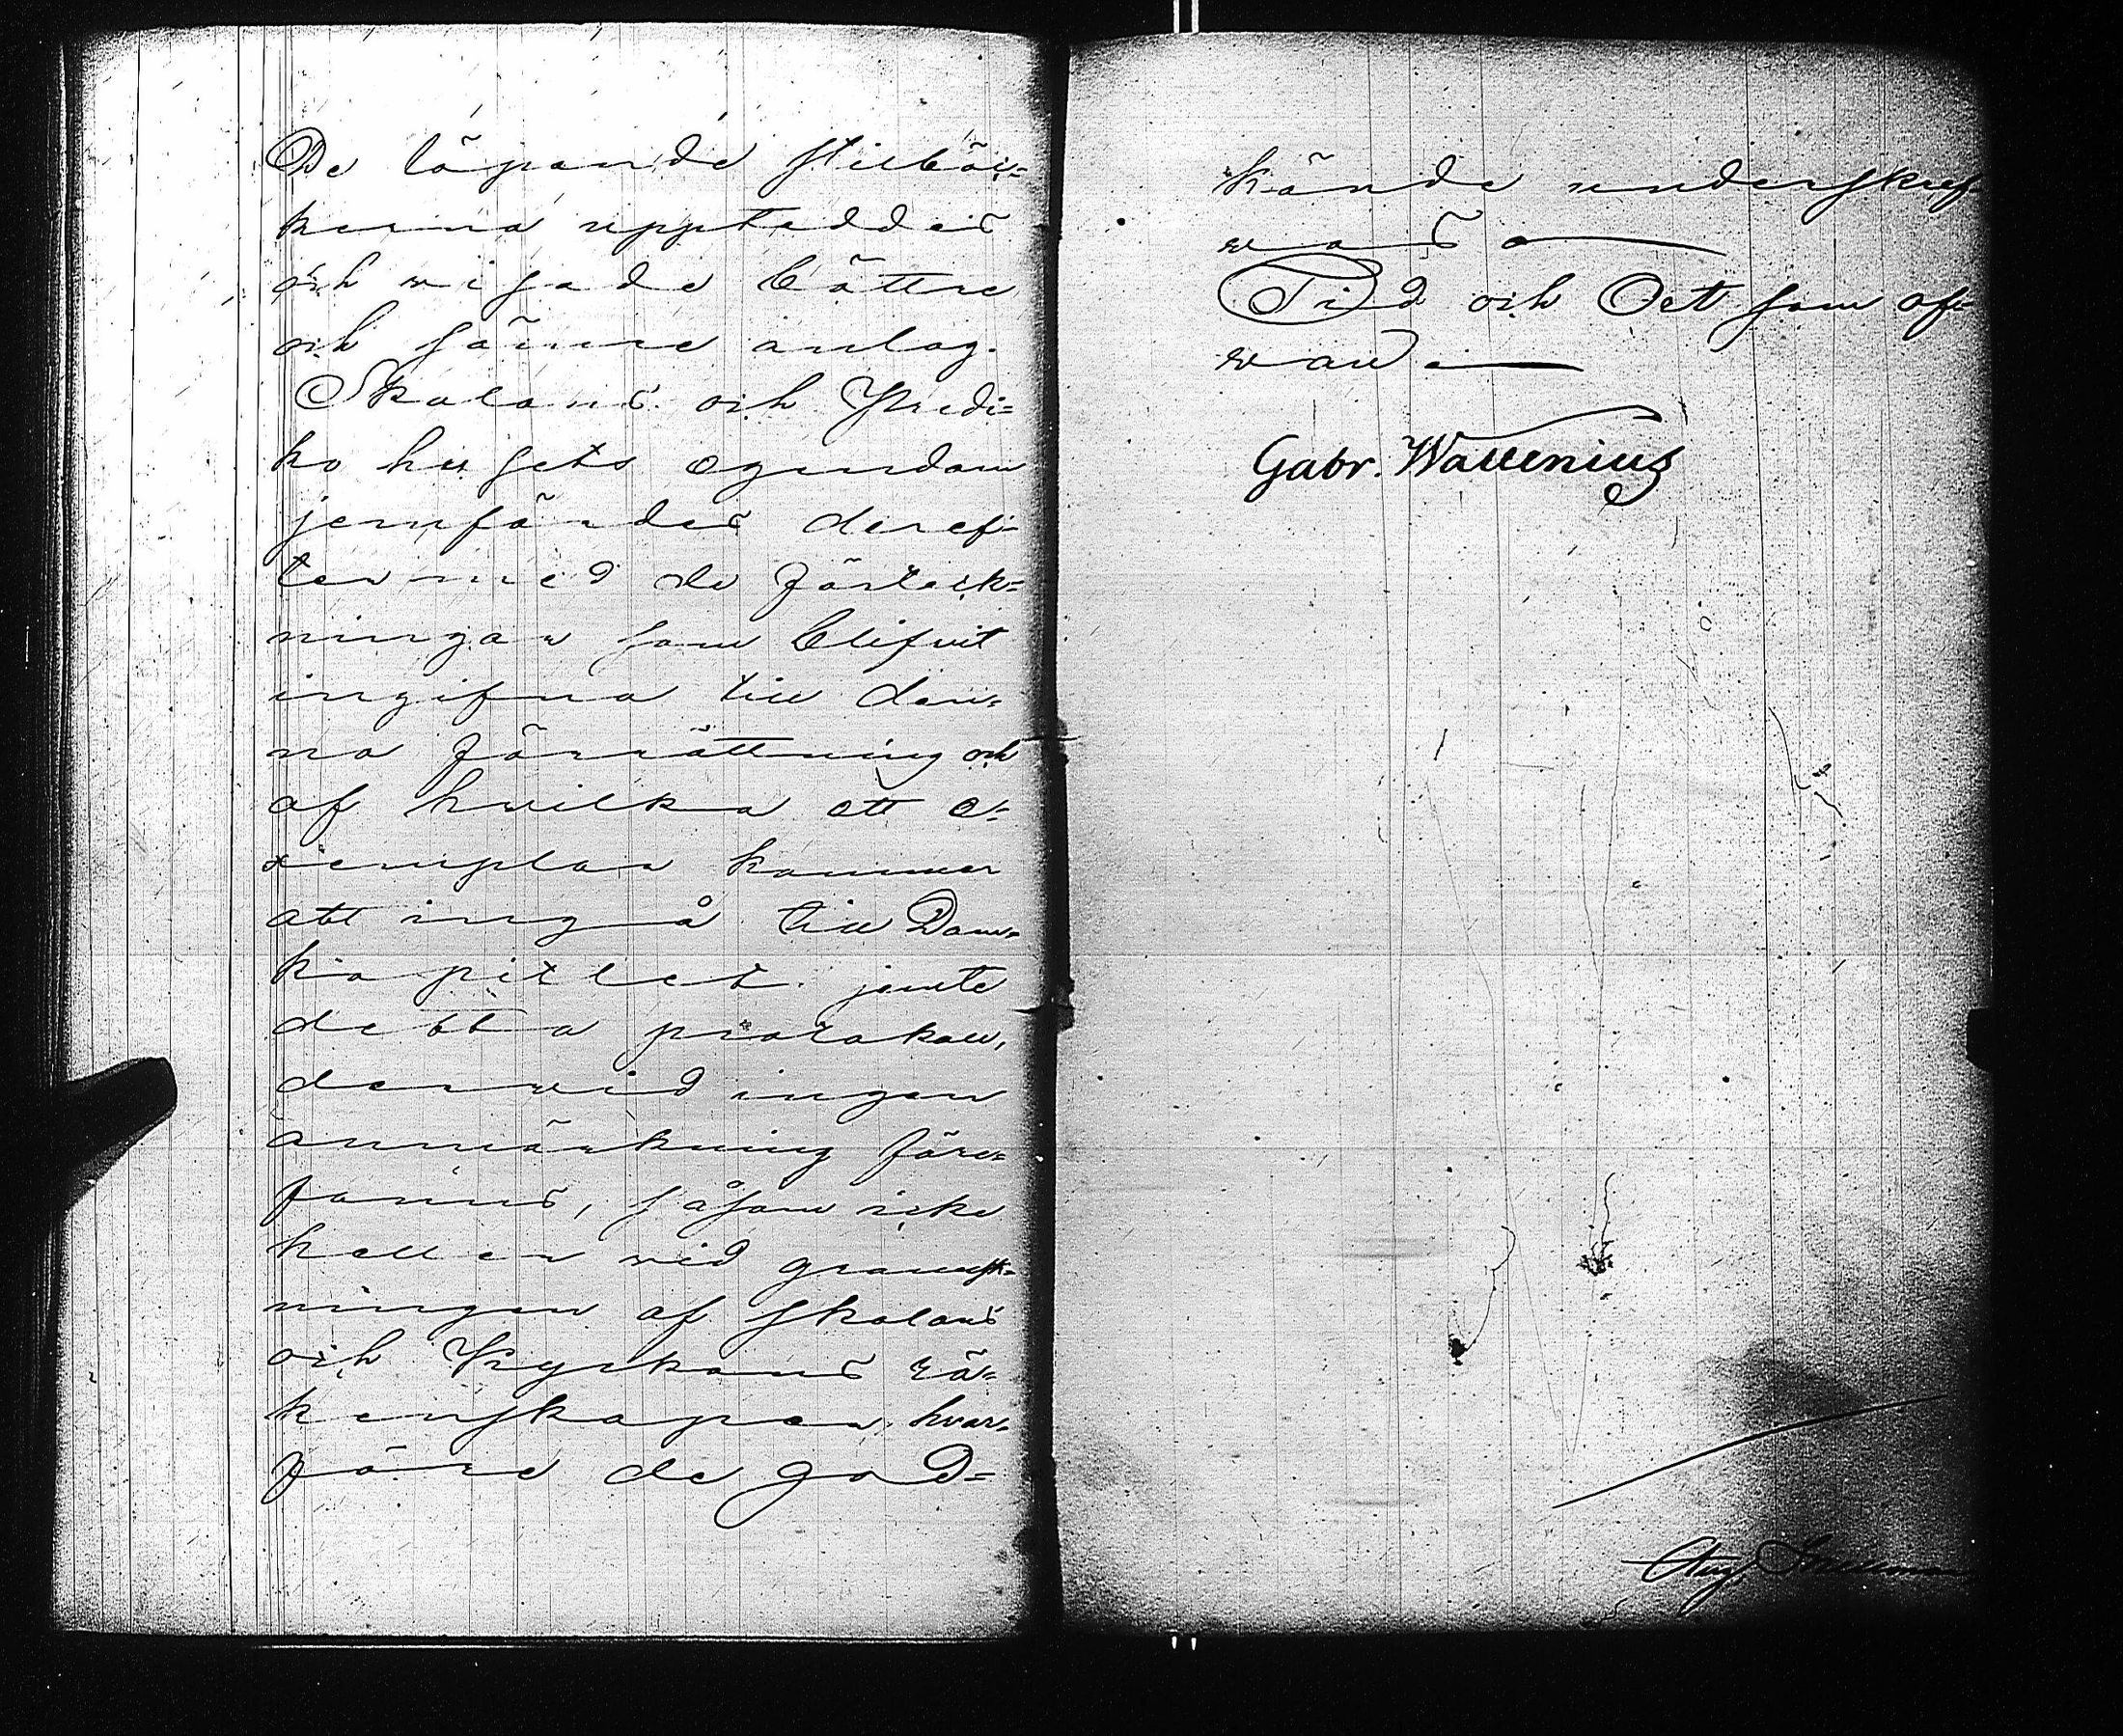 De löpande stilböc-
kerna uppteddes
och wisade bättre
och sämre anlag.
Skolans och Predi-
kohusets egendom
jemfördes deref-
ter med de förteck-
ningar som blifvit
ingifna till den-
na förrättning och
af hvilka ett e-
xemplar kommer
att ingå till Dom-
kapitlet jemte
detta protokoll,
dervid ingen
anmärkning före-
fanns, såsom icke
heller vid gransk-
ningen af skolans
och Kyrkans rä-
kenskaper, hvar-
före de god-
kände underskref-
was.
Tid och Ort som of-
wan.
Gabr. Wallenius
Aug.